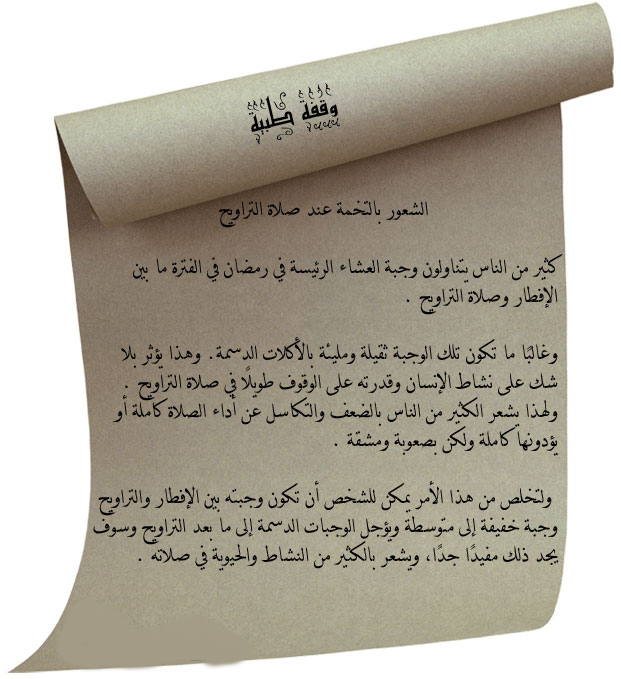 وقفة طبية
الشعور بالتخمة عند صلاة التراويح
كثير من الناس يتناولون وجبة العشاء الرئيسة في رمضان في الفترة ما بين
الإفطار وصلاة التراويح .
وغالبًا ما تكون تلك الوجبة ثقيلة ومليئة بالأكلات الدسمة. وهذا يؤثر بلا
شك على نشاط الإنسان وقدرته على الوقوف طويلًا في صلاة التراويح .
ولهذا يشعر الكثير من الناس بالضعف والتكاسل عن أداء الصلاة كاملة أو
يؤدونها كاملة ولكن بصعوبة ومشقة .
ولتخلص من هذا الأمر يمكن للشخص أن تكون وجبته بين الإفطار والتراويح
وجبة خفيفة إلى متوسطة ويؤجل الوجبات الدسمة إلى ما بعد التراويح وسوف
يجد ذلك مفيدًا جدًا، ويشعر بالكثير من النشاط والحيوية في صلاته .